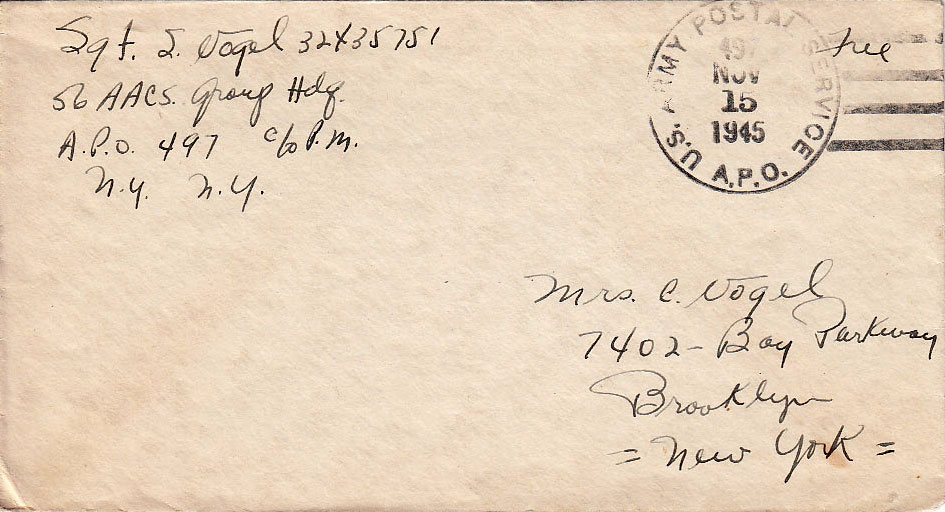 Sgt. S. Vogel 32435751
56 AACS. Group Hdq.
A.P.O. 497 c/o P.M.
N.Y. N.Y.
U.S. ARMY POSTAL SERVICE
497
NOV
15
1945
A.P.O.
Free
Mrs. C. Vogel
7402 - Bay Parkway
Brooklyn
= New York =